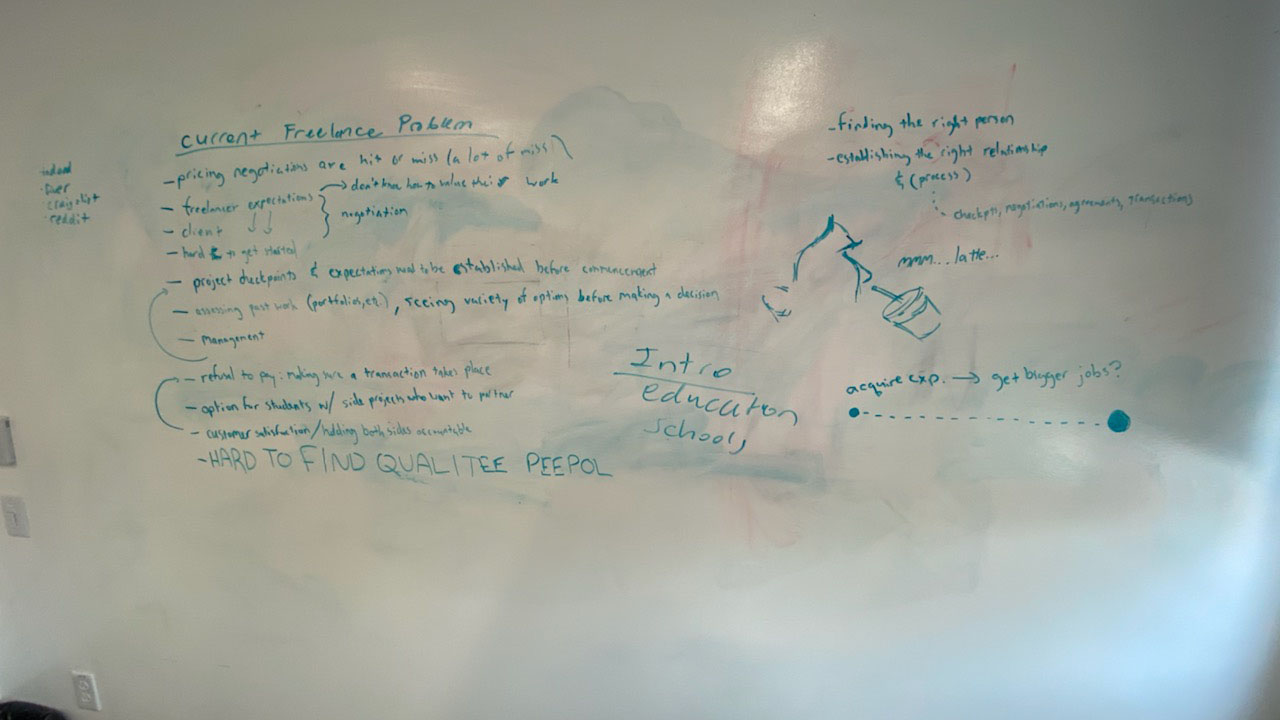 Current Freelance Problem
- pricing negotiations are hit or miss (a lot of miss)
- freelancer expectations
→ don't know how to value their work
- client
negotiation
- hard to get started
- project checkpoints & expectations need to be established before commencement
- assessing past work (portfolios, etc.), seeing variety of options before making a decision
- management
- refusal to pay: making sure a transaction takes place
- option for students w/ side projects who want to partner
- customer satisfaction/holding both sides accountable
- HARD TO FIND QUALITEE PEEPOL
craigslist
reddit
Intro
education
schools
- finding the right person
- establishing the right relationship
& (process)
checkpts, negotiations, agreements, transactions
mmm... latte...
acquire exp. → get bigger jobs?